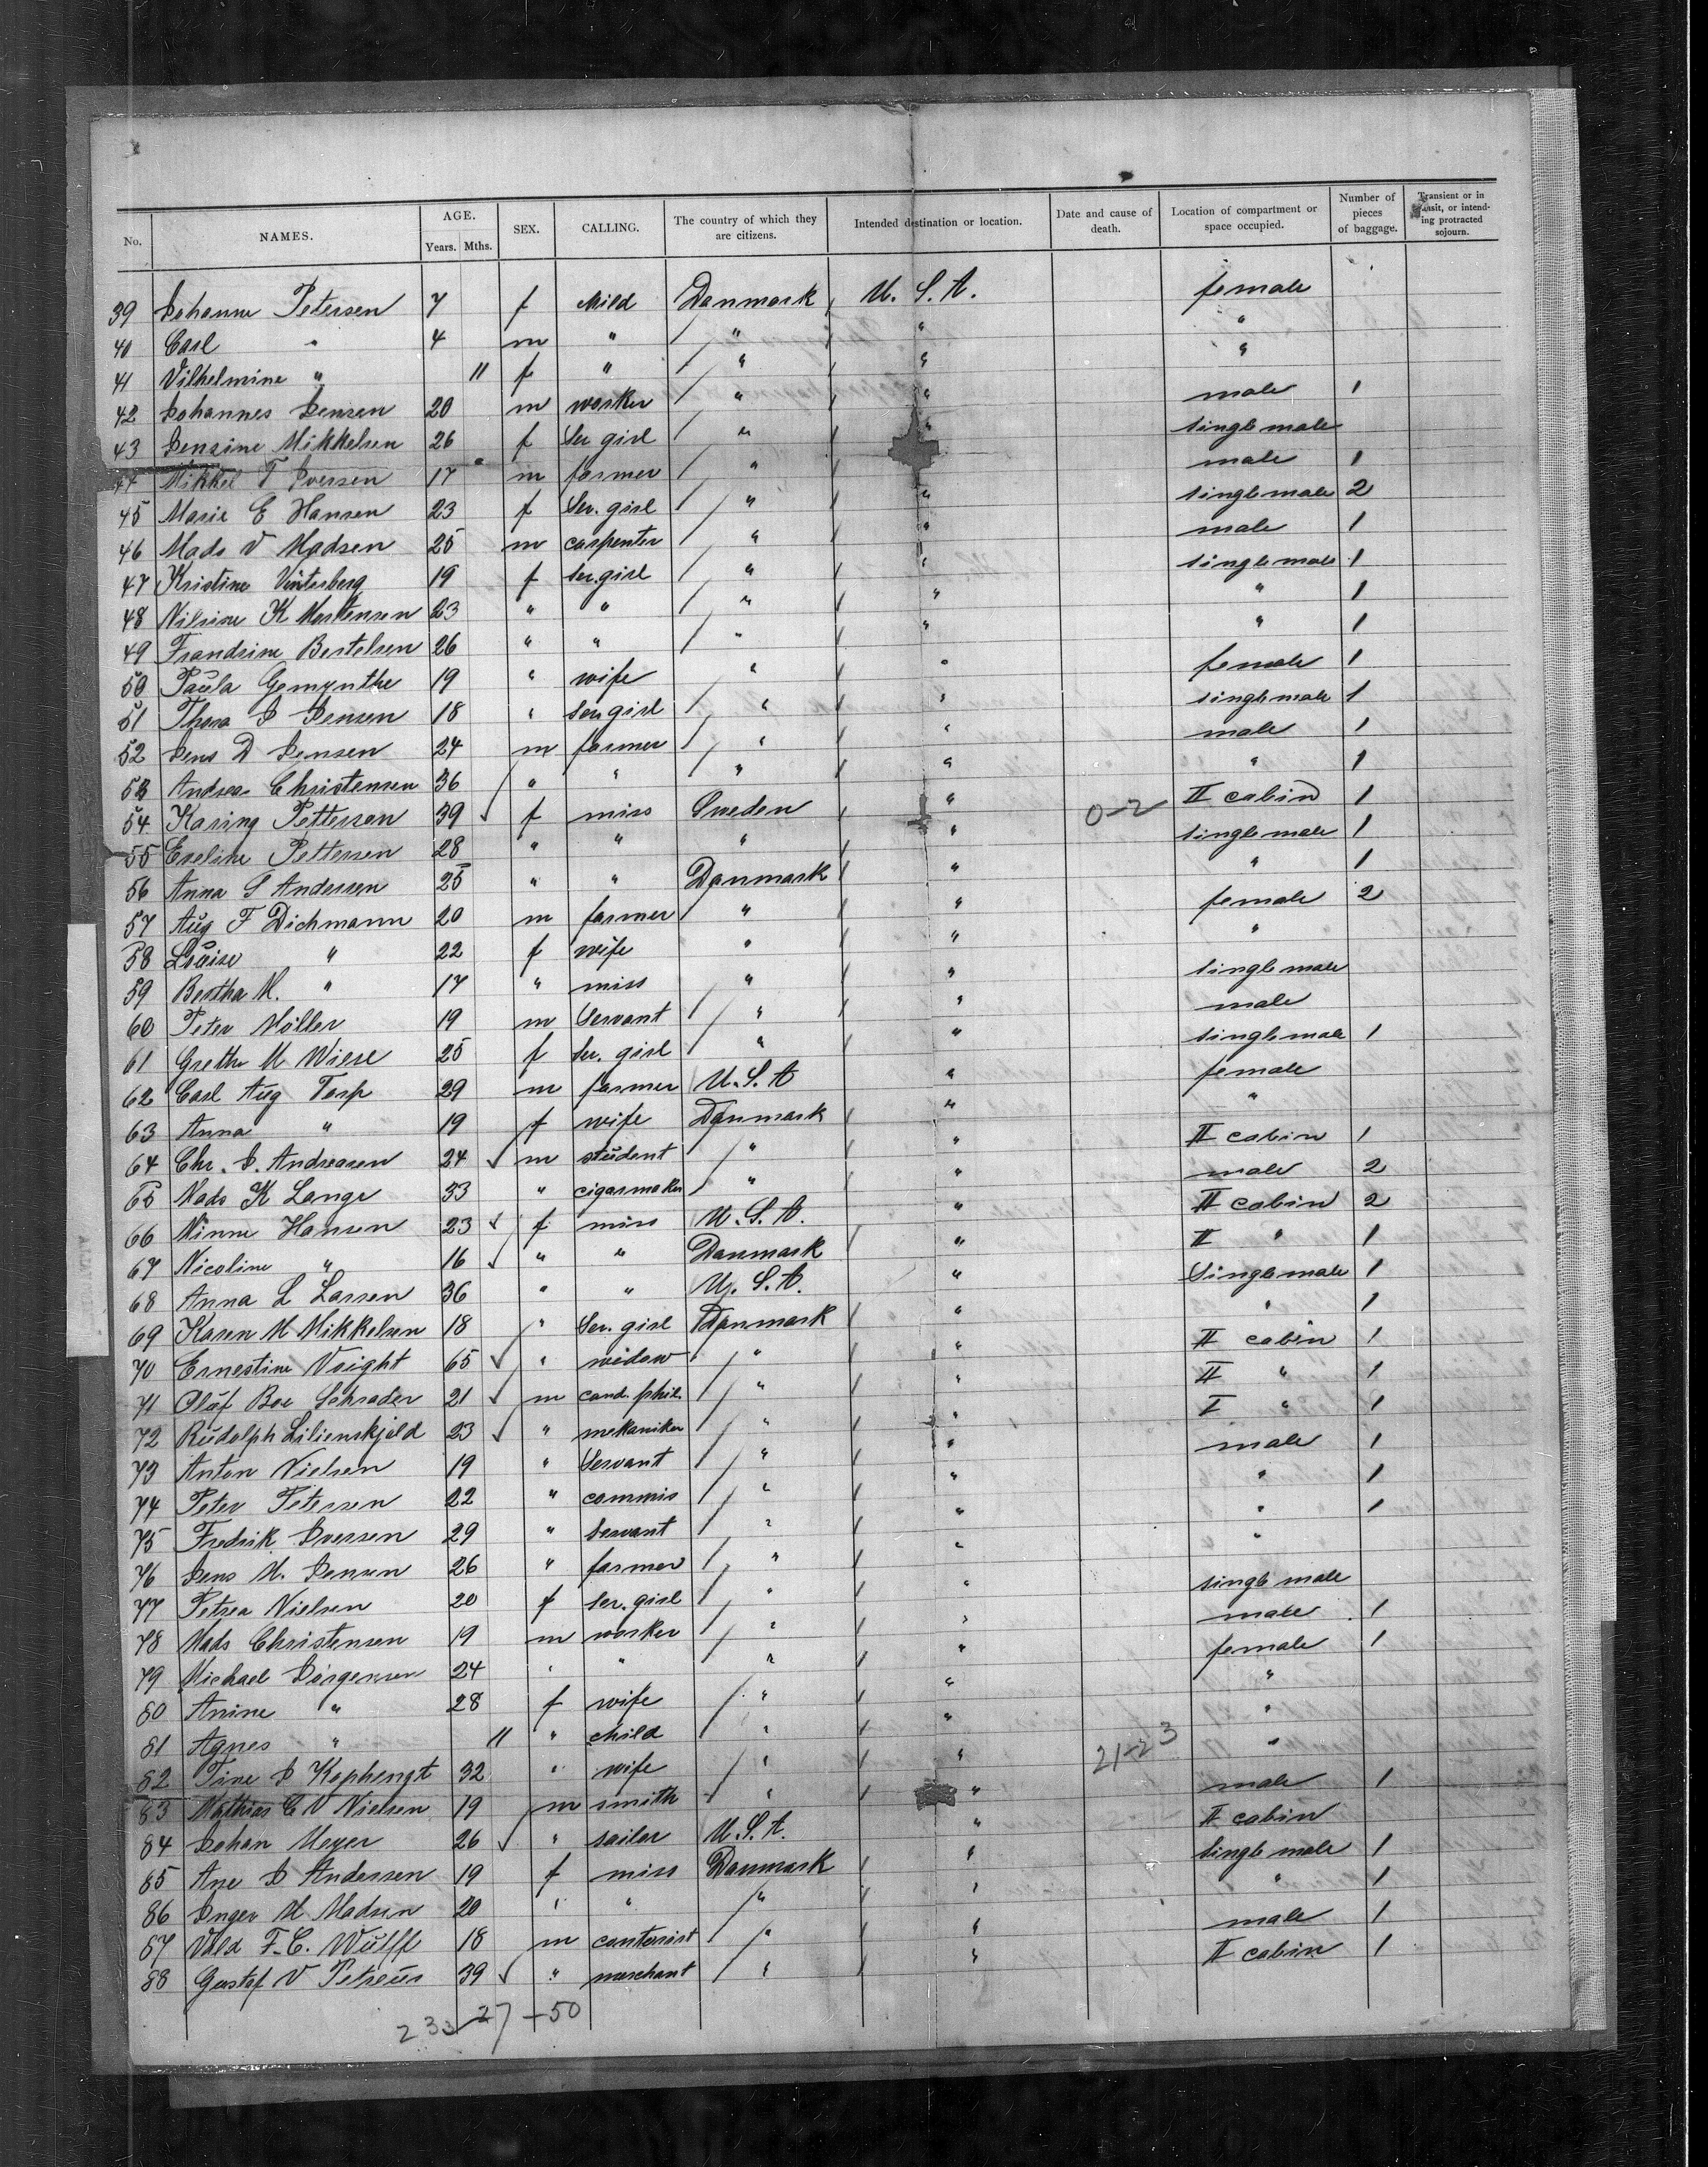 No. NAMES. AGE. Years. Mths. SEX. CALLING. The country of which they are citizens. Intended destination or location. Date and cause of death. Location of compartment or space occupied. Number of pieces of baggage. Transient or in transit, or intending protracted sojourn.
39 Johanne Petersen 7 f child Danmark U. S. A. female
40 Carl " 4 m " " " "
41 Vilhelmine " 11 f " " " "
42 Johannes Jensen 20 m worker " " male 1
43 Jensine Mikkelsen 26 f Ser girl " " single male
44 Mikkel T Iversen 17 m farmer " " male 1
45 Marie E Hansen 23 f Ser. girl " " single male 2
46 Mads V Madsen 25 m carpenter " " male 1
47 Kristine Vinterberg 19 f Ser. girl " " single male 1
48 Nilsine K Mortensen 23 " " " " " 1
49 Frandsine Bertelsen 26 " " " " " 1
50 Paula Gemynthe 19 " wife " " female 1
51 Thora J Jensen 18 " Ser. girl " " single male 1
52 Jens D Jensen 24 m farmer " " male 1
53 Andreas Christensen 36 " " " " " 1
54 Karing Pettersen 39 ✓ f miss Sweden " 0-2 II cabin 1
55 Eveline Pettersen 28 " " " " single male 1
56 Anna S Andersen 25 " " Danmark " " 1
57 Aug F Dichmann 20 m farmer " " female 2
58 Louise " 22 f wife " " "
59 Bertha M. " 17 " miss " " single male
60 Peter Möller 19 m Servant " " male
61 Grethe M Wiese 25 f Ser. girl " " single male 1
62 Carl Aug Torp 29 m farmer U. S. A " female
63 Anna " 19 f wife Danmark " "
64 Chr. J. Andreasen 24 ✓ m student " " II cabin 1
65 Mads K Lange 33 " cigarmaker " " male 2
66 Minne Hansen 23 ✓ f miss U. S. A. " II cabin 2
67 Nicoline " 16 ✓ " " Danmark " II " 1
68 Anna L Larsen 36 " " U. S. A. " Single male 1
69 Karen M Mikkelsen 18 " Ser. girl Danmark " " 1
70 Ernestine Voight 65 ✓ " widow " " II cabin 1
71 Oluf Boe Schrader 21 ✓ m cand. phil. " " II " 1
72 Rudolph Lilienskjold 23 ✓ " mekaniker " " I " 1
73 Anton Nielsen 19 " Servant " " male 1
74 Peter Petersen 22 " commis " " " 1
75 Fredrik Iversen 29 " Servant " " " 1
76 Jens M. Jensen 26 " farmer " " "
77 Petrea Nielsen 20 f ser. girl " " single male
78 Mads Christensen 19 m worker " " male 1
79 Michael Jörgensen 24 " " " " female 1
80 Anine " 28 f wife " " "
81 Agnes " 11 " child " " "
82 Tine J Kophengt 32 " wife " " 21-23 "
83 Mathias C V Nielsen 19 m smith " " male 1
84 Johan Meyer 26 ✓ " sailor U. S. A. " II cabin
85 Ane J Andersen 19 f miss Danmark " single male 1
86 Inger M Madsen 20 " " " " " 1
87 Vald F. C. Wulff 18 m contorist " " male 1
88 Gustaf V Petreus 39 ✓ " merchant " " II cabin 1
27 + 50